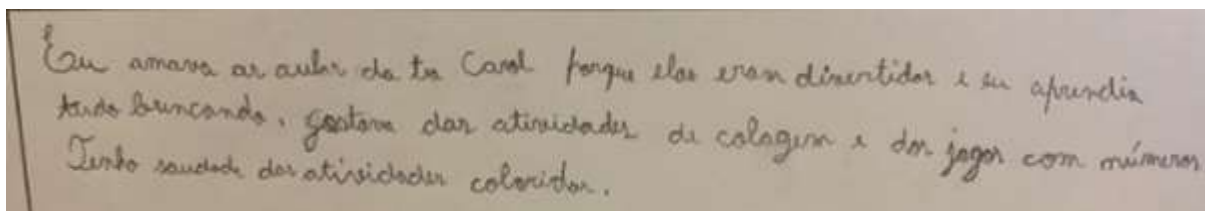 Eu amava as aulas da tia Carol porque elas eram divertidas e eu aprendia
tudo brincando, gostava das atividades de colagem e dos jogos com números
Tenho saudade das atividades coloridas.